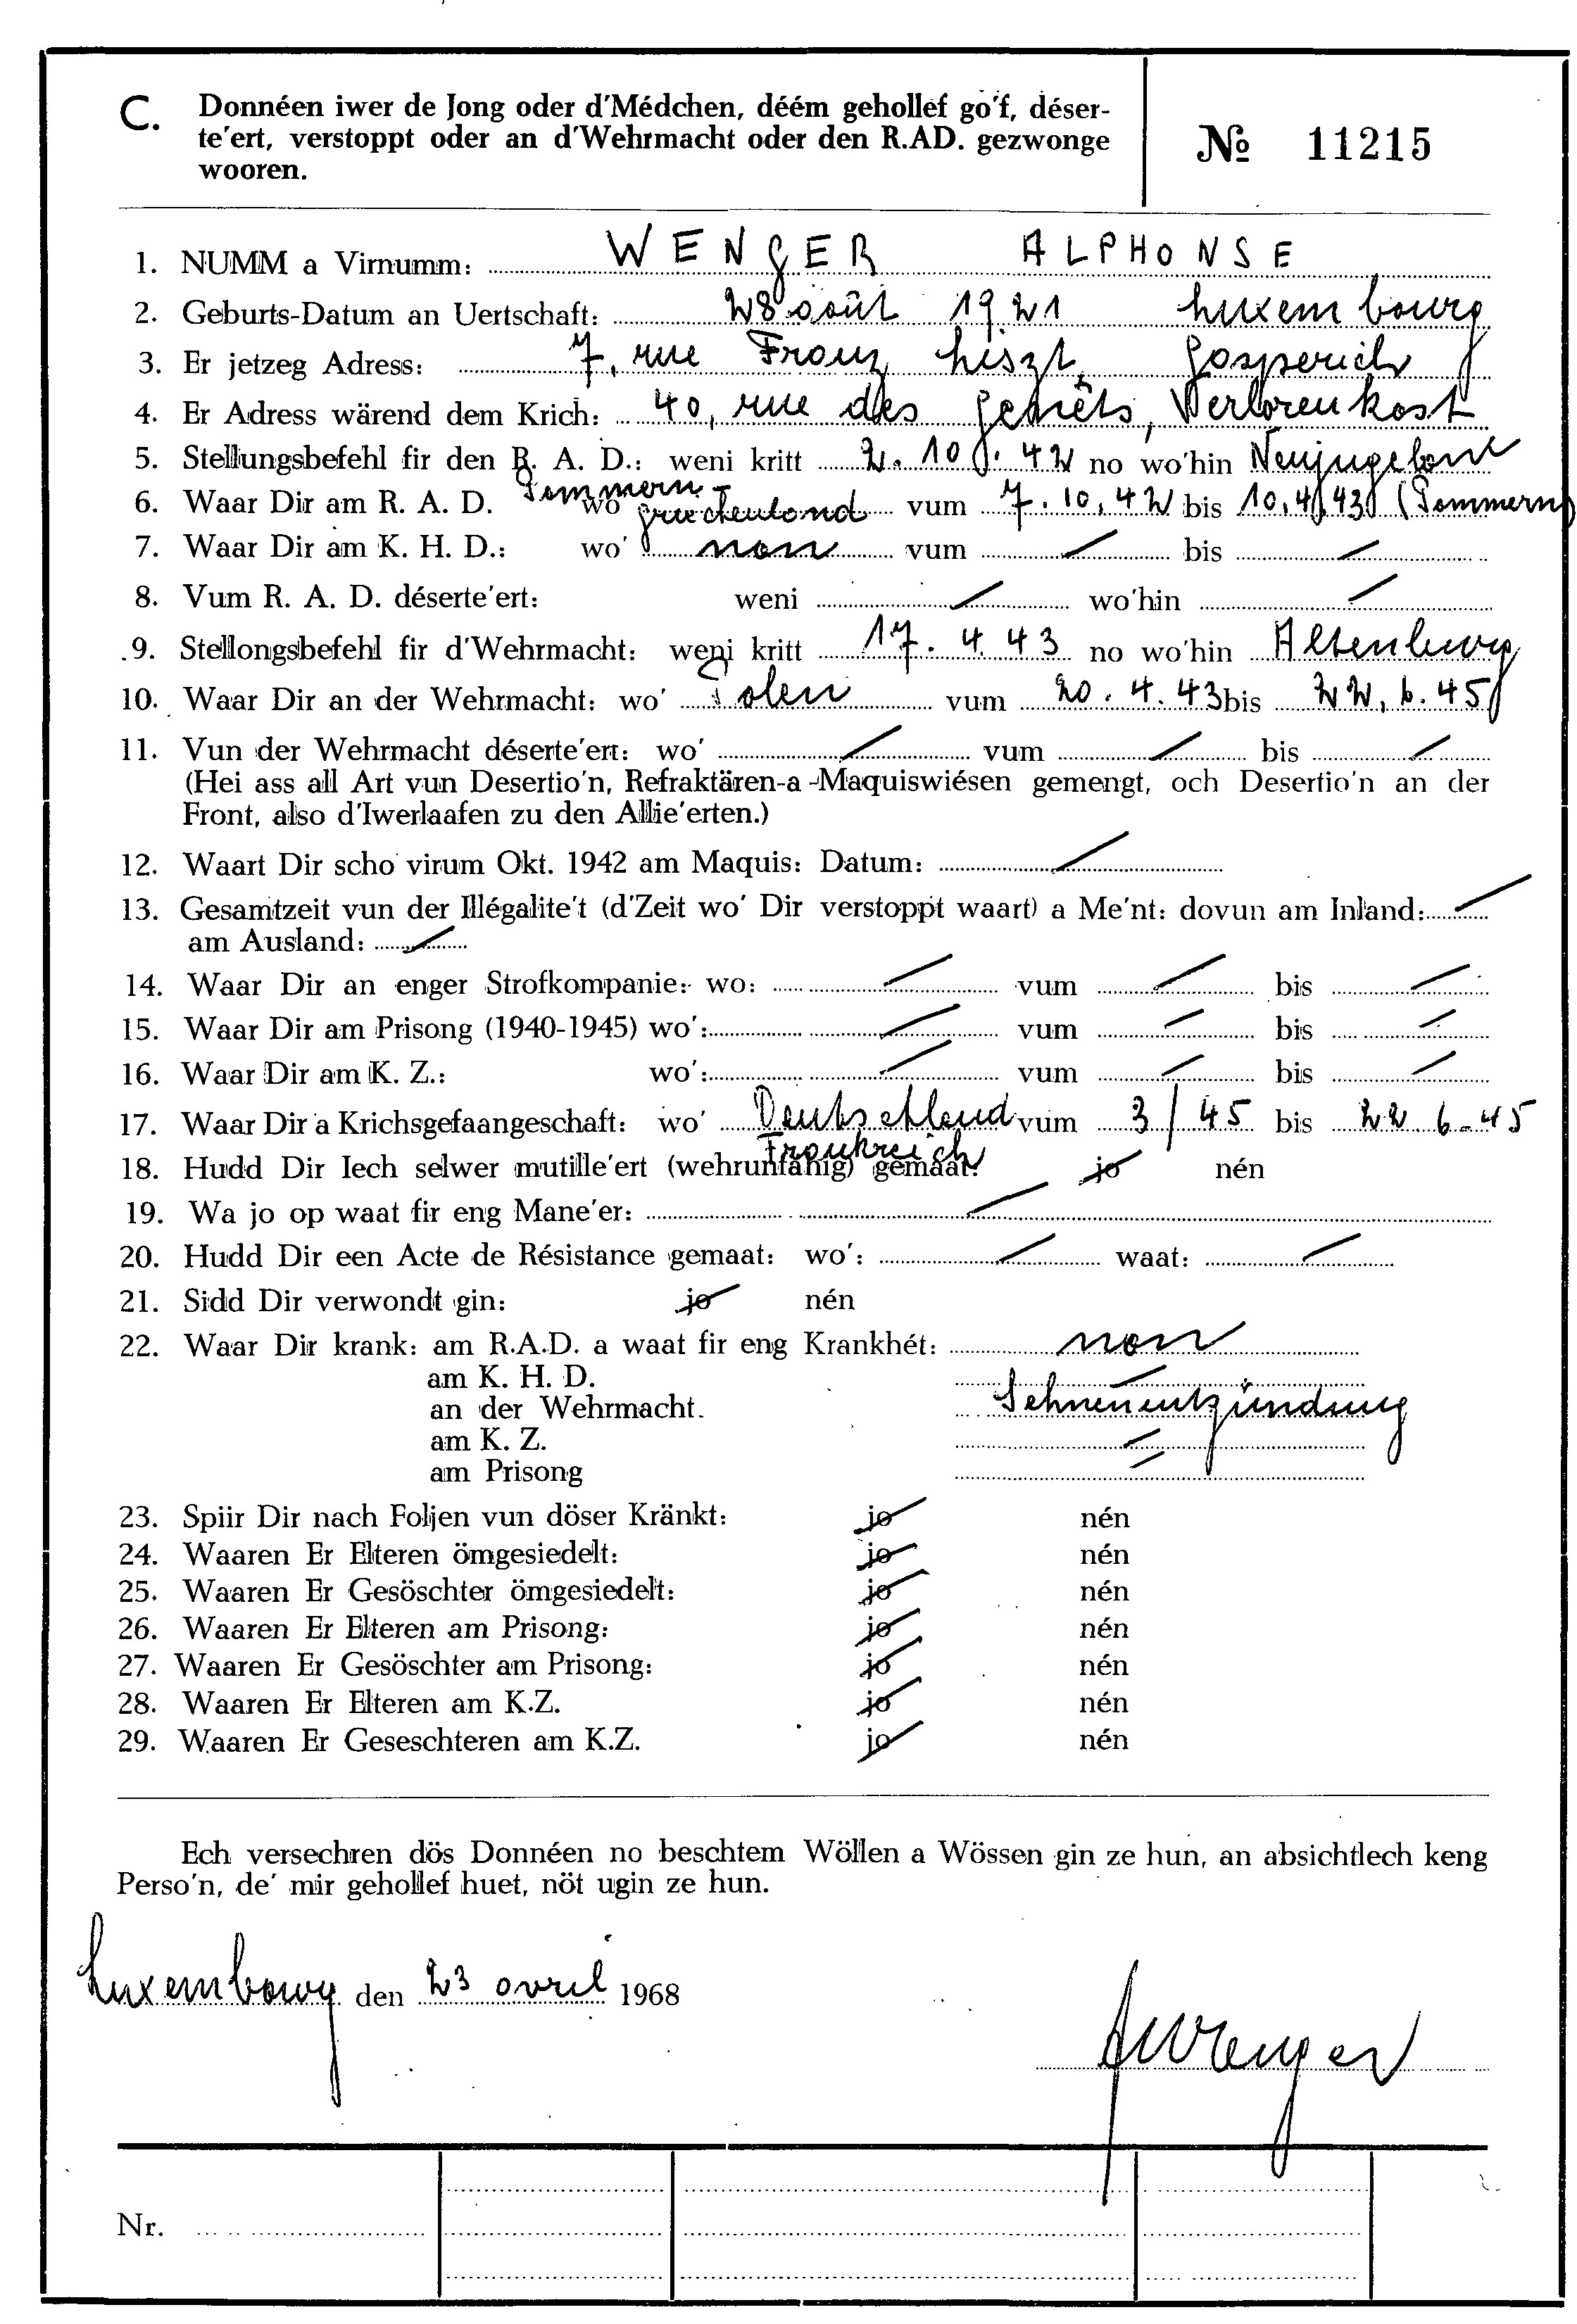 C. Donnéen iwer de Jong oder d'Médchen, déém gehollef go'f, déser-
te'ert, verstoppt oder an d'Wehrmacht oder den R.AD. gezwonge
wooren.
№ 11215
1. NUMM a Virnumm: WENGER ALPHONSE
2. Geburts-Datum an Uertschaft: 28 août 1921 Luxembourg
3. Er jetzeg Adress: 7, rue Franz Liszt, Gasperich
4. Er Adress wärend dem Krich: 40, rue des Genêts, Verlorenkost
5. Stellungsbefehl fir den R. A. D.: weni kritt 2. 10. 42 no wo'hin
6. Waar Dir am R. A. D. wo Pommern - Griechenland vum 7.10.42 bis 10.4.43 (Pommern)
7. Waar Dir am K. H. D.: wo' non vum / bis /
8. Vum R. A. D. déserte'ert: weni / wo'hin /
9. Stellongsbefehl fir d'Wehrmacht: weni kritt 17. 4. 43 no wo'hin Altenburg
10. Waar Dir an der Wehrmacht: wo' Polen vum 20. 4. 43 bis 22. 6. 45
11. Vun der Wehrmacht déserte'ert: wo' / vum / bis /
(Hei ass all Art vun Desertio'n, Refraktären-a -Maquiswiésen gemengt, och Desertio'n an der
Front, also d'Iwerlaafen zu den Allie'erten.)
12. Waart Dir scho virum Okt. 1942 am Maquis: Datum: /
13. Gesamtzeit vun der Illégalite't (d'Zeit wo' Dir verstoppt waart) a Me'nt: dovun am Inland: /
am Ausland: /
14. Waar Dir an enger Strofkompanie: wo: / vum / bis /
15. Waar Dir am Prisong (1940-1945) wo': / vum / bis /
16. Waar Dir am K. Z.: wo': / vum / bis /
17. Waar Dir a Krichsgefaangeschaft: wo' Deutschland vum 3/45 bis 22.6-45
Frankreich
18. Hudd Dir Iech selwer mutille'ert (wehrunfähig) gemaat: jo nén
19. Wa jo op waat fir eng Mane'er: /
20. Hudd Dir een Acte de Résistance gemaat: wo': / waat: /
21. Sidd Dir verwondt gin: jo nén
22. Waar Dir krank: am R.A.D. a waat fir eng Krankhét: non
am K. H. D. /
an der Wehrmacht. Sehnenentzündung
am K. Z. /
am Prisong /
23. Spiir Dir nach Foljen vun döser Kränkt: jo nén
24. Waaren Er Elteren ömgesiedelt: jo nén
25. Waaren Er Gesöschter ömgesiedelt: jo nén
26. Waaren Er Elteren am Prisong: jo nén
27. Waaren Er Gesöschter am Prisong: jo nén
28. Waaren Er Elteren am K.Z. jo nén
29. Waaren Er Geseschteren am K.Z. jo nén
Ech versechren dös Donnéen no beschtem Wöllen a Wössen gin ze hun, an absichtlech keng
Perso'n, de' mir gehollef huet, nöt ugin ze hun.
Luxembourg den 23 avril 1968
AWenger
Nr.